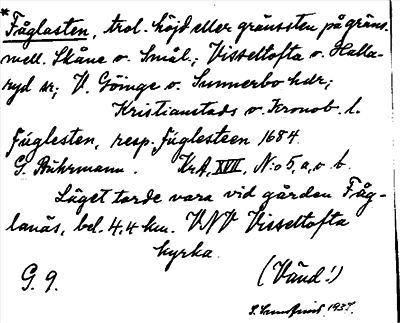 * Fåglasten, trol. höjd eller gränssten på gräns.
mell. Skåne o. Smål.; Visseltofta o. Halla-
ryd sr; V. Göinge o. Sunnerbo hdr;
Kristianstads o. Kronob. l.
Fúglesten, resp. fúglesteen 1684
G. Buhrmann. KrA, XVII, N:o 5, a, o. b.
Läget torde vara vid gården Fåg-
lanäs, bel. 4,4 km. VNV Visseltofta
kyrka.
G. 9. (Vänd!)
1937.